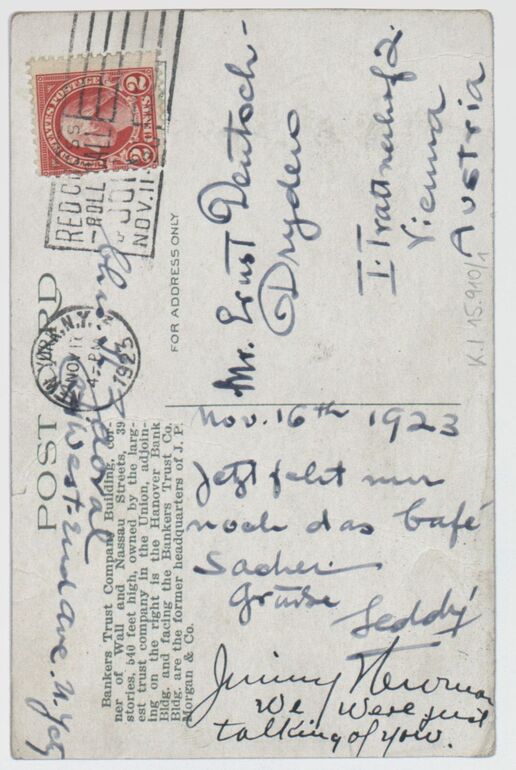 POST CARD
UNITED STATES POSTAGE
2 CENTS 2
RED CROSS
ROLL CALL
JOIN
NOV. 11
NEW YORK, N.Y.
NOV 17
4-PM
1923
FOR ADDRESS ONLY
Mr. Ernst Deutsch-
Dryden
I. Trattnerhof 2.
Vienna
Austria
K.I 15.910/1
West-End Ave. N.Y. City
Bankers Trust Company Building, cor-
ner of Wall and Nassau Streets, 39
stories, 540 feet high, owned by the larg-
est trust company in the Union, adjoin-
ing on the right is the Hanover Bank
Bldg. and facing the Bankers Trust Co.
Bldg. are the former headquarters of J. P.
Morgan & Co.
Nov. 16th 1923
Jetzt fehlt nur
noch das Café
Sacher
Grüsse
Jimmy
We were just
talking of you.